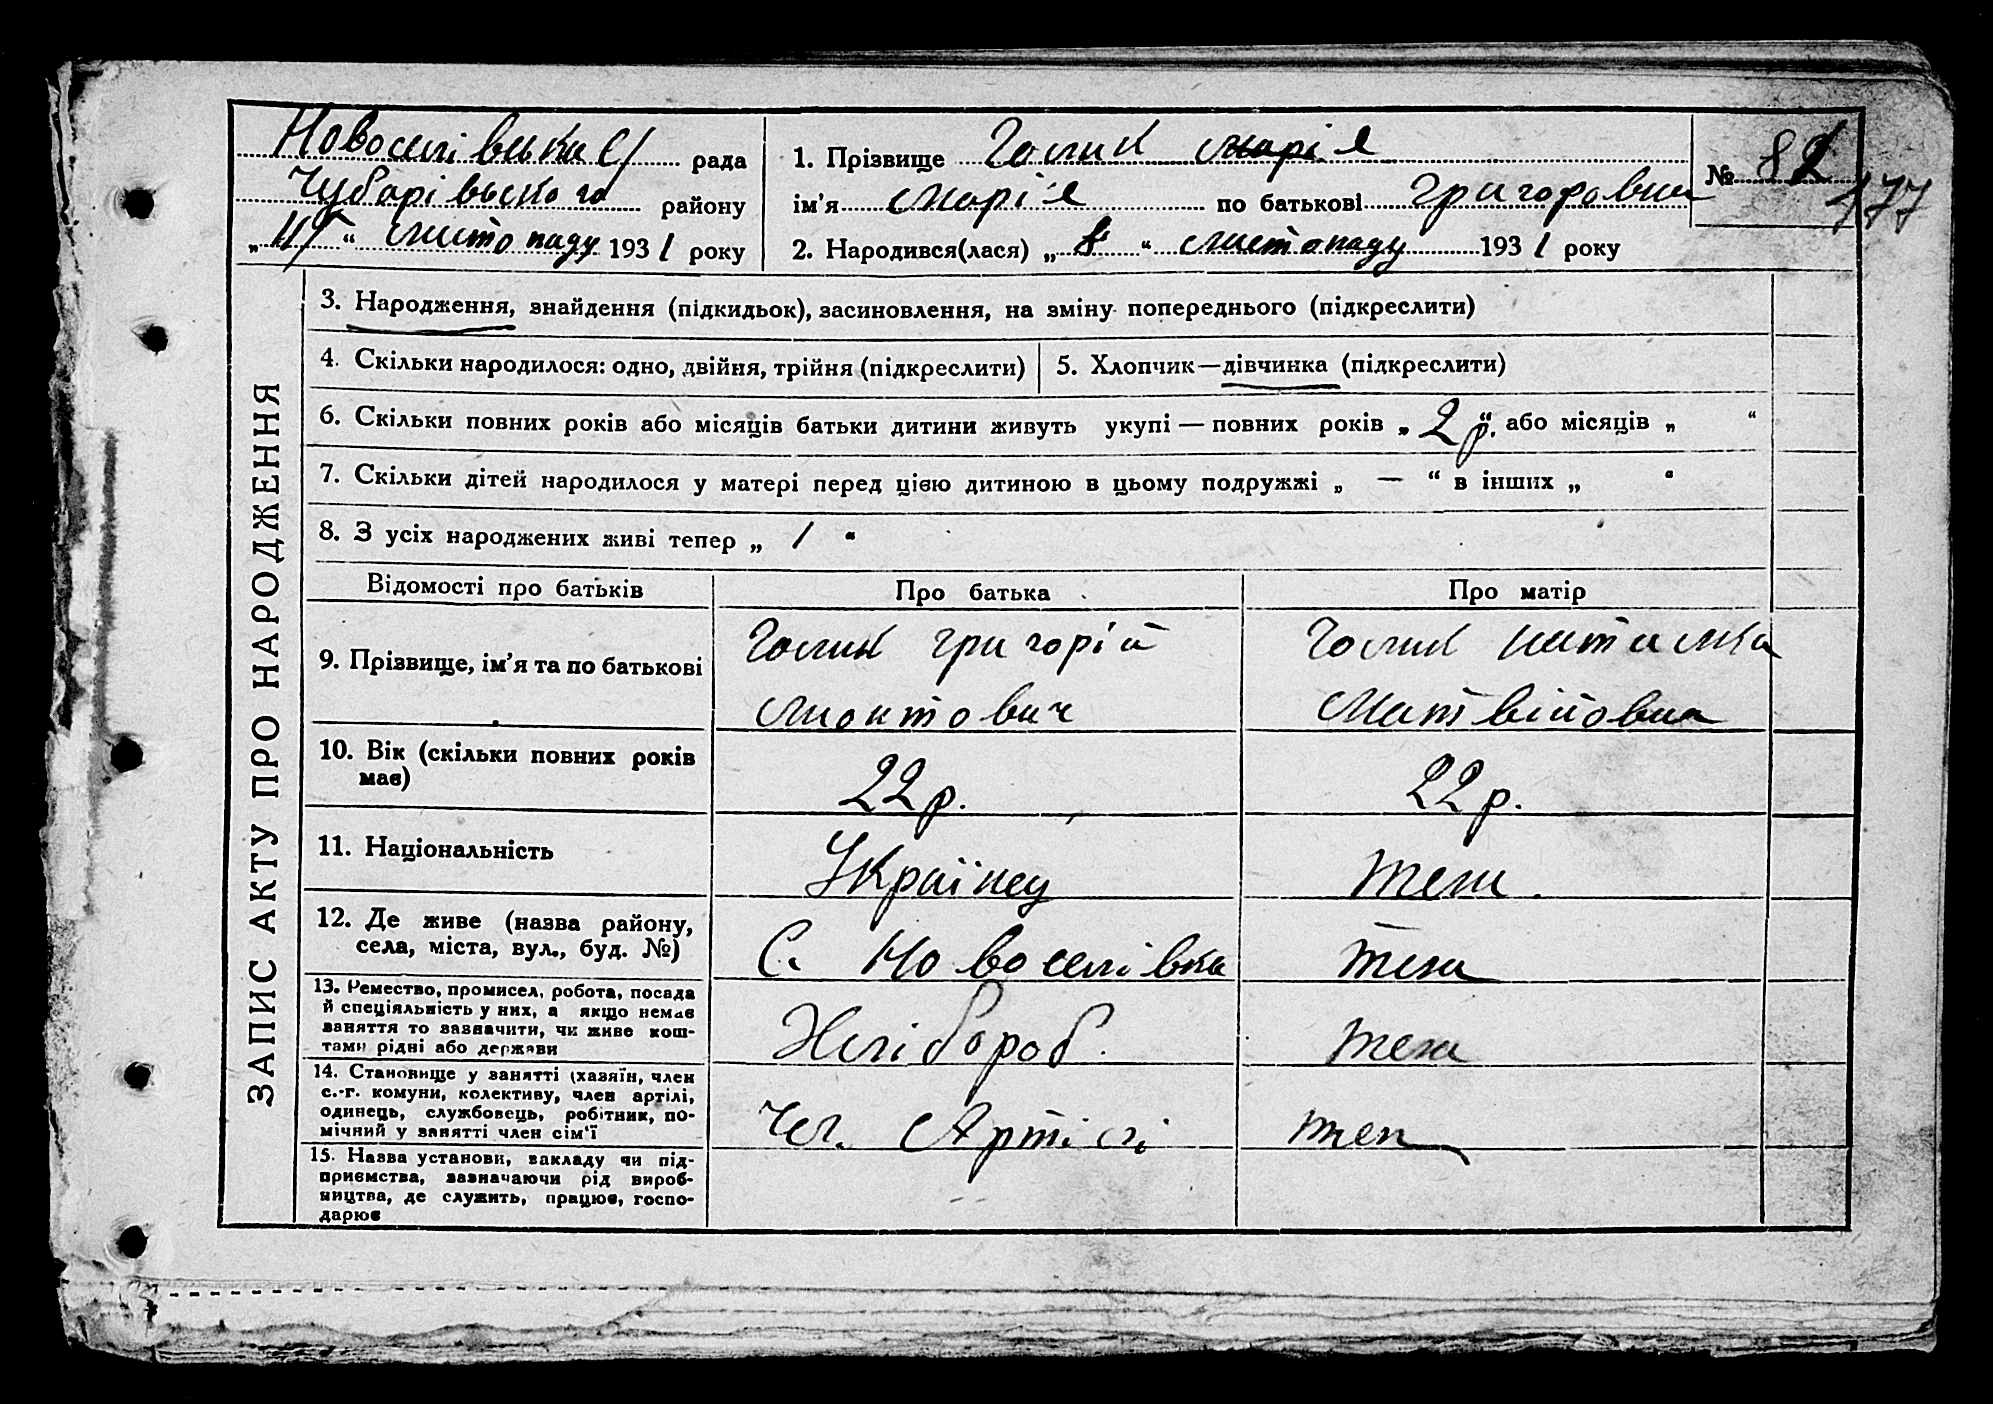 Новоселівська с/ рада
Чубарівського району
„ 11 “ листопаду 1931 року
1. Прізвище Голик Марія
ім'я Марія по батькові Григоровна
2. Народився(лася) „ 8 “ листопаду 1931 року
№ 82
177
ЗАПИС АКТУ ПРО НАРОДЖЕННЯ
3. Народження, знайдення (підкидьок), засиновлення, на зміну попереднього (підкреслити)
4. Скільки народилося: одно, двійня, трійня (підкреслити)
5. Хлопчик—дівчинка (підкреслити)
6. Скільки повних років або місяців батьки дитини живуть укупі — повних років „ 2 р. “ або місяців „ “
7. Скільки дітей народилося у матері перед цією дитиною в цьому подружжі „ — “ в інших „ “
8. З усіх народжених живі тепер „ 1 “
Відомості про батьків
Про батька
Про матір
9. Прізвище, ім'я та по батькові
Голик Григорій
Голик
Матвійовна
10. Вік (скільки повних років
має)
22 р.
22 р.
11. Національність
Українец
теж
12. Де живе (назва району,
села, міста, вул., буд. №)
С. Новоселівка
теж
13. Ремество, промисел, робота, посада
й спеціяльність у них, а якщо немає
заняття то зазначити, чи живе кош-
тами рідні або держави
Хлібороб
теж
14. Становище у занятті (хазяїн, член
с.-г. комуни, колективу, член артілі,
одинець, службовець, робітник, по-
мічний у занятті член сім'ї
Чл. Артілі
теж
15. Назва установи, закладу чи під-
приємства, зазначаючи рід вироб-
ництва, де служить, працює, госпо-
дарює